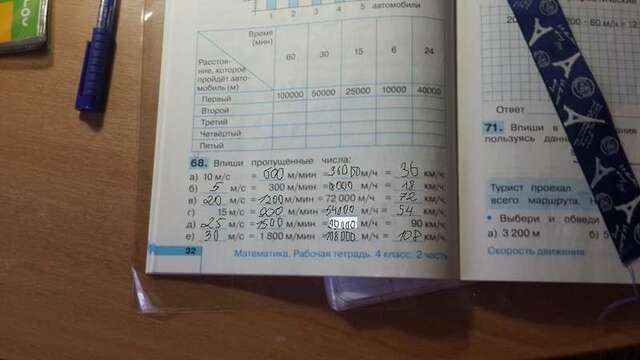 1 2 3 4 5 автомобили
Время
(мин)
60 30 15 6 24
Расстоя-
ние, которое
пройдёт авто-
мобиль (м)
Первый 100000 50000 25000 10000 40000
Второй
Третий
Четвёртый
Пятый
68. Впиши пропущенные числа:
а) 10 м/с = 600 м/мин = 36000 м/ч = 36 км/ч
б) 5 м/с = 300 м/мин = м/ч = 18 км/ч
в) 20 м/с = 1200 м/мин = 72 000 м/ч = 72 км/ч
г) 15 м/с = 900 м/мин = 54000 м/ч = 54 км/ч
д) 25 м/с = 1500 м/мин = м/ч = 90 км/ч
е) 30 м/с = 1 800 м/мин = 108 000 м/ч = 108 км/ч
32 Математика. Рабочая тетрадь. 4 класс. 2 часть
200 - 80 м/ч = 12
Ответ
71. Впиши в
пользуясь данн
Турист проехал
всего маршрута. Н
• Выбери и обведи
а) 3 200 м б) 5
Скорость движения